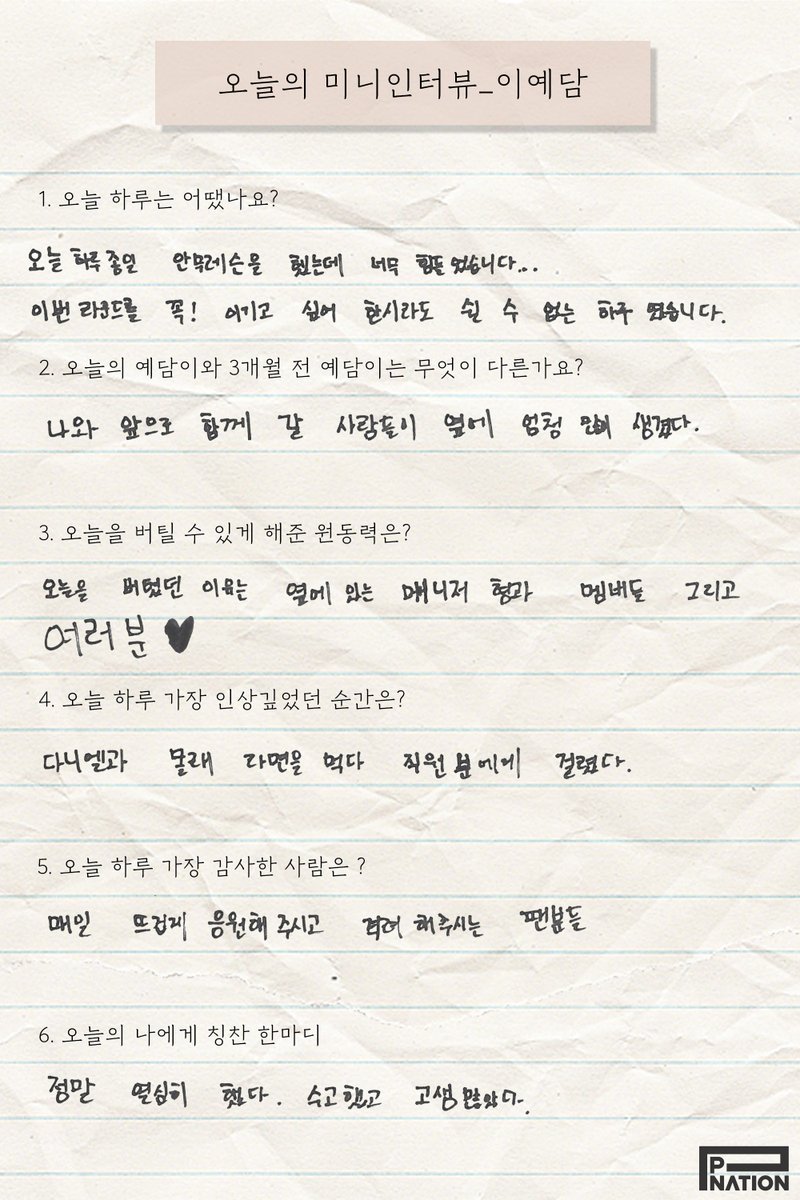 오늘의 미니인터뷰_이예담
1. 오늘 하루는 어땠나요?
오늘 하루종일 안무레슨을 했는데 너무 힘들었습니다...
이번 라운드를 꼭! 이기고 싶어 한시라도 쉴 수 없는 하루 였습니다.
2. 오늘의 예담이와 3개월 전 예담이는 무엇이 다른가요?
나와 앞으로 함께 갈 사람들이 옆에 엄청 많이 생겼다.
3. 오늘을 버틸 수 있게 해준 원동력은?
오늘을 버텼던 이유는 옆에 있는 매니저 형과 멤버들 그리고
여러분 ♥
4. 오늘 하루 가장 인상깊었던 순간은?
다니엘과 몰래 라면을 먹다 직원분에게 걸렸다.
5. 오늘 하루 가장 감사한 사람은 ?
매일 뜨겁게 응원해 주시고 격려 해주시는 팬분들
6. 오늘의 나에게 칭찬 한마디
정말 열심히 했다. 수고했고 고생 많았다.
P NATION